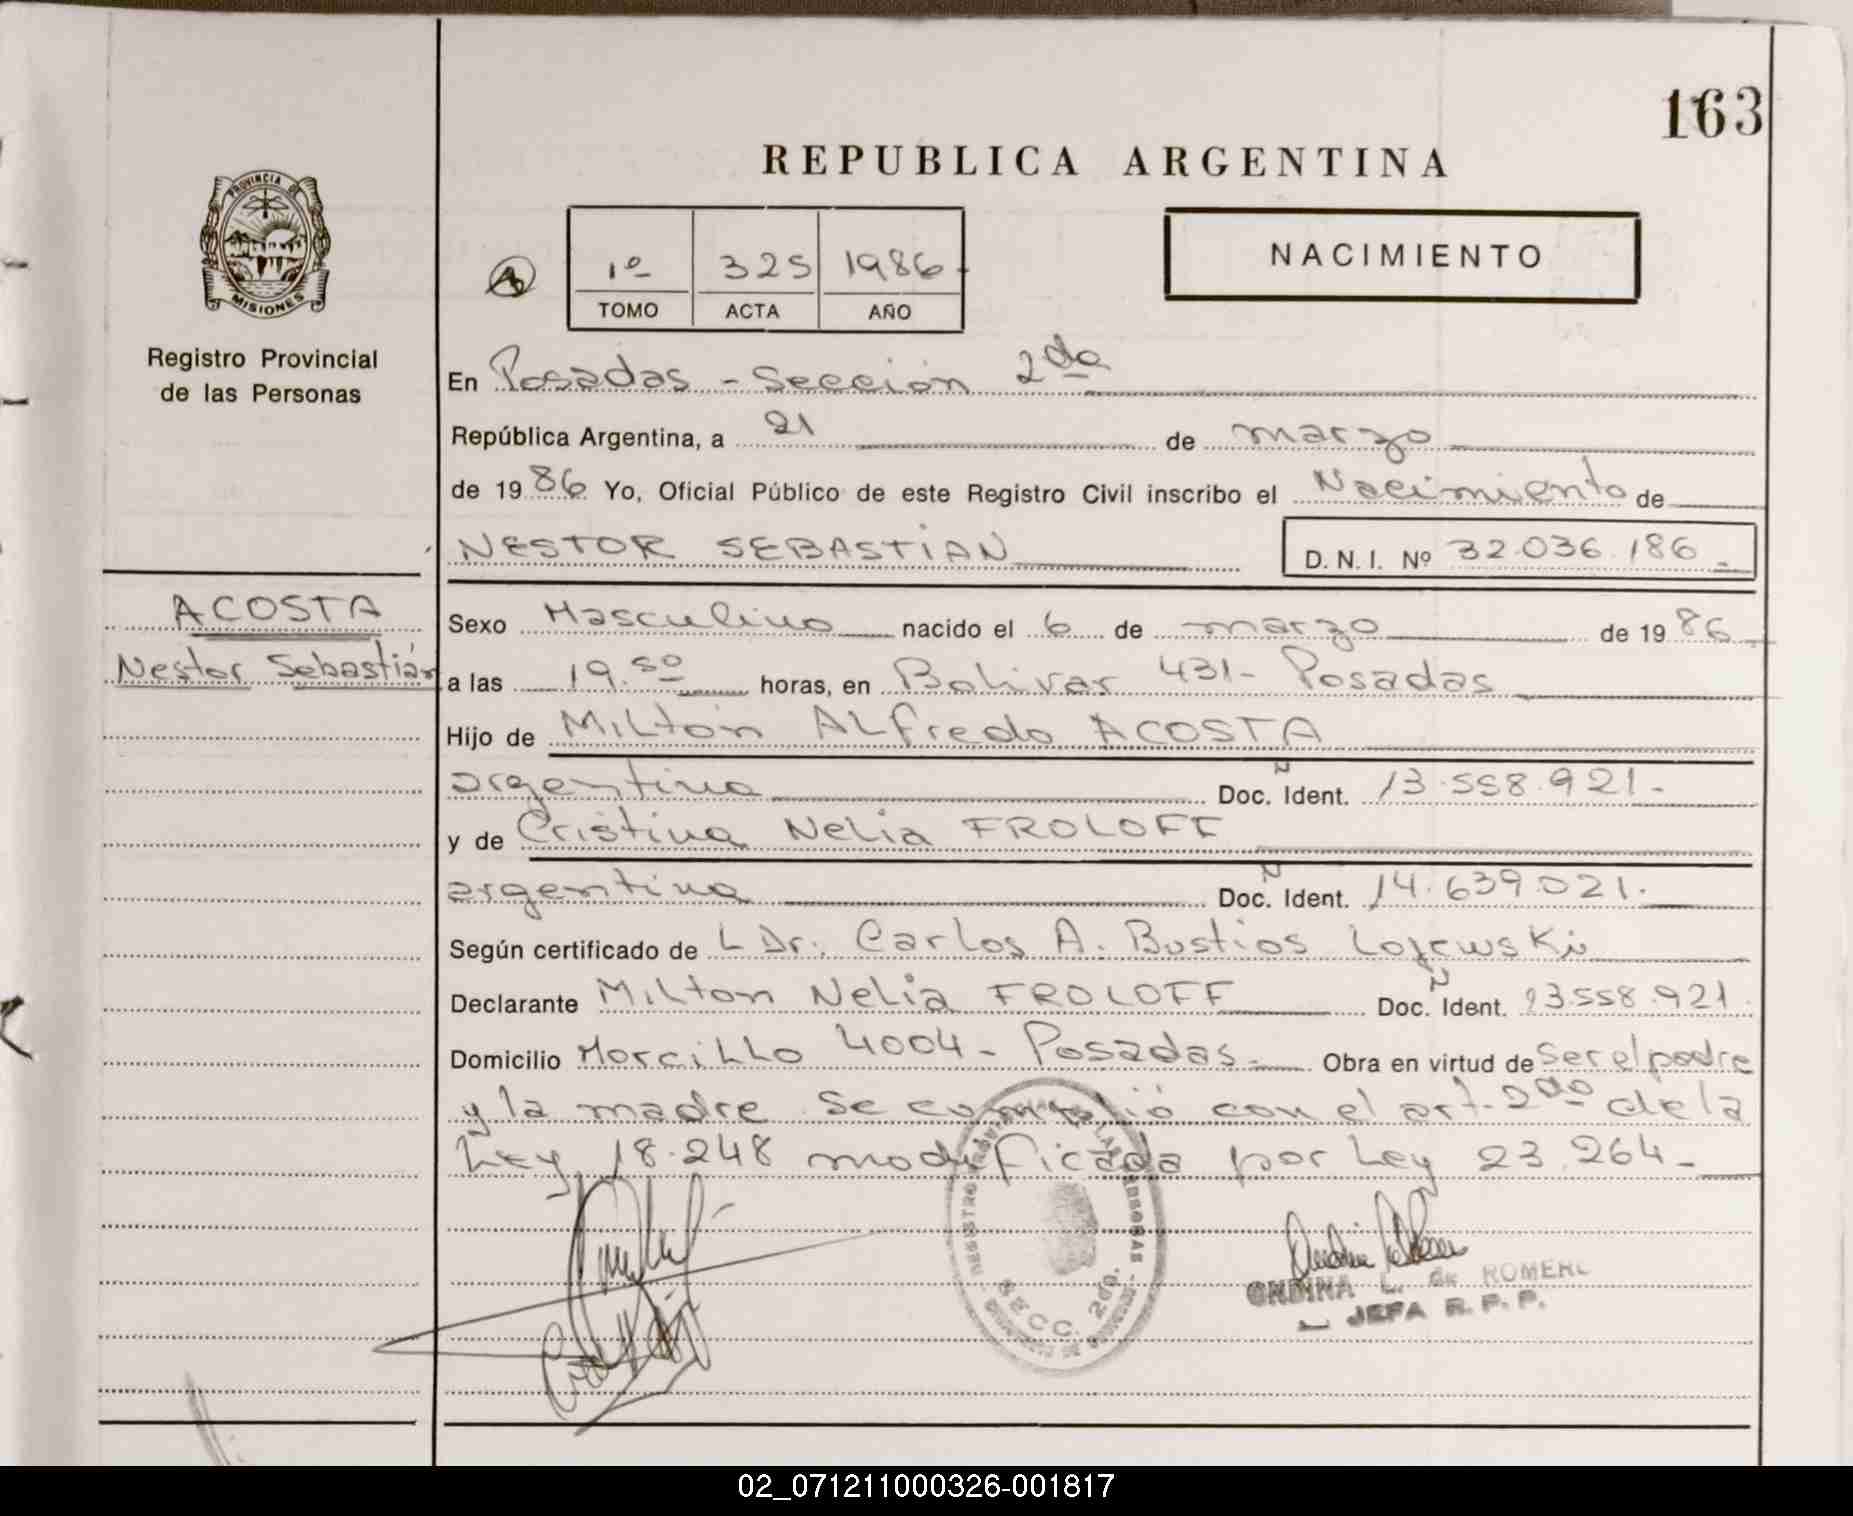 163
REPUBLICA ARGENTINA
PROVINCIA DE
MISIONES
Registro Provincial
de las Personas
1º 325 1986
TOMO ACTA AÑO
NACIMIENTO
En Posadas - Sección 2da
República Argentina, a 21 de marzo
de 1986 Yo, Oficial Público de este Registro Civil inscribo el Nacimiento de
NESTOR SEBASTIAN D. N. I. Nº 32.036.186
ACOSTA
Nestor Sebastián
Sexo Masculino nacido el 6 de marzo de 1986
a las 19.50 horas, en Bolivar 431- Posadas
Hijo de Milton Alfredo ACOSTA
argentino Doc. Ident. 13.558.921-
y de Cristina Nelia FROLOFF
argentina Doc. Ident. 14.639.021.
Según certificado de L Dr. Carlos A. Bustios Lojewski
Declarante Milton Nelia FROLOFF Doc. Ident. 13.558.921
Domicilio Morcillo 4004- Posadas- Obra en virtud de ser el padre
y la madre se cumplió con el art. 2do de la
Ley 18.248 modificada por Ley 23.264-
SECC. 2da.
ONDINA L. de ROMERO
JEFA R. P. P.
02_071211000326-001817